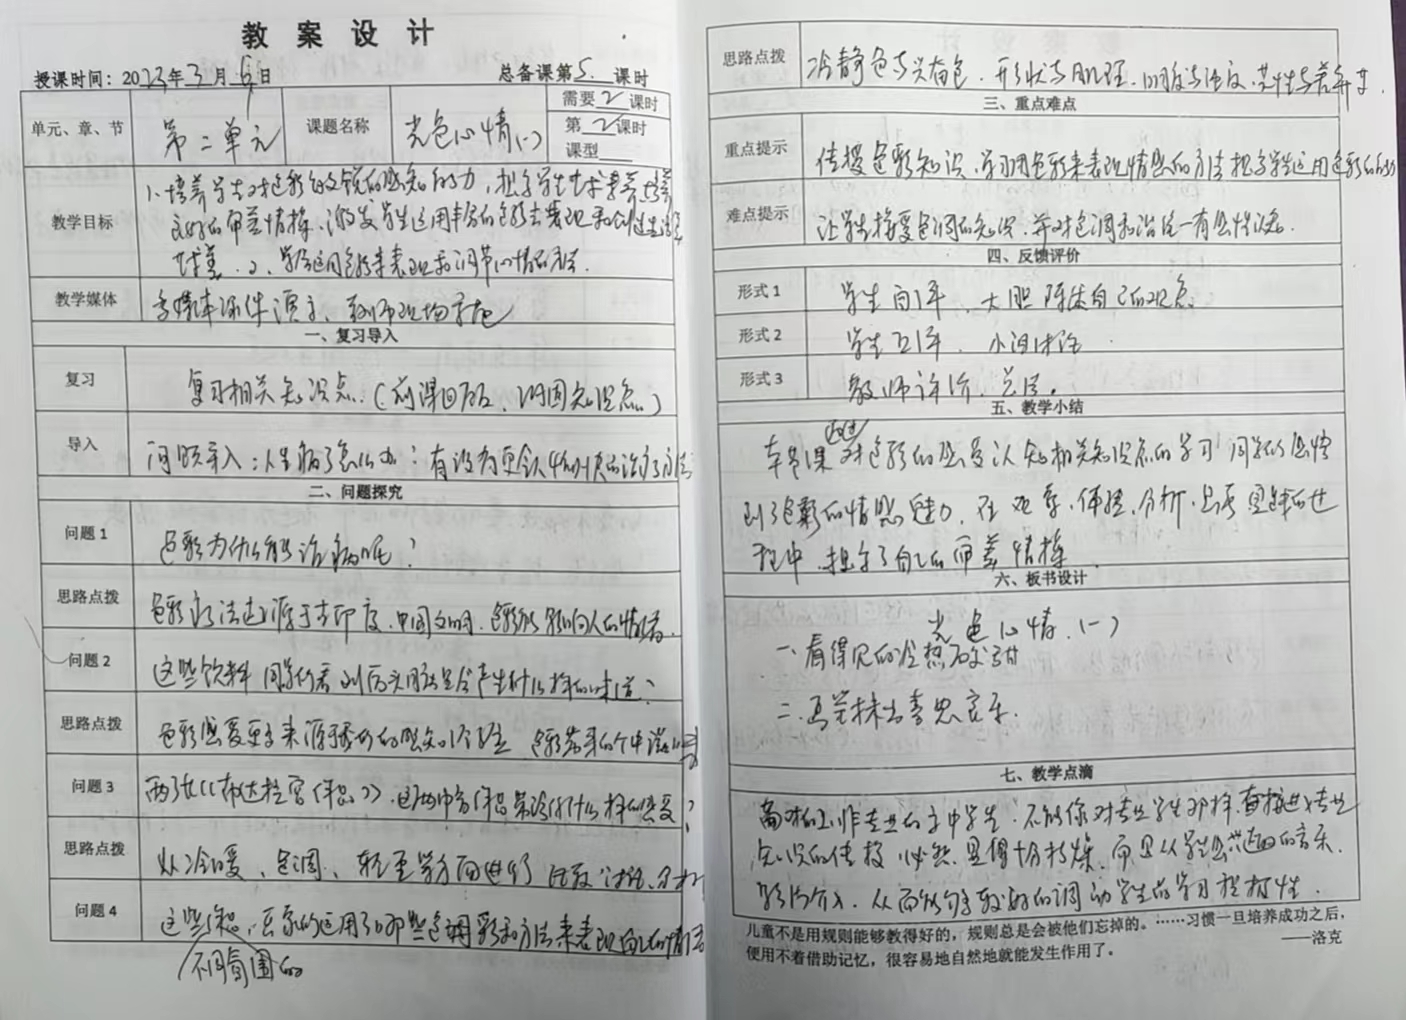 教 案 设 计
授课时间：2023年3月6日 总备课第5课时
单元、章、节 第二单元 课题名称 光色心情(一) 需要2课时
第2课时
课型
教学目标 1、培养学生对色彩的 的感知能力，提高学生 素养，培养
良好的审美情操、激发学生运用丰富的色彩去表现和创造生活
2、学会运用色彩来表现和调节心情的方法.
教学媒体 多媒体课件演示、教师现场示范
一、复习导入
复习 复习相关知识点.(前课回顾、巩固知识点)
导入 问题导入：人生病了怎么办？有没有更令人 的治疗方法
二、问题探究
问题 1 色彩为什么能治病呢？
思路点拨 色彩疗法 源于古印度、中国文明、色彩能影响人的情绪.
问题 2 这些饮料同学们看到后 会产生什么样的味道？
思路点拨 色彩感受更多来源于 的感知经验
问题 3 两张《布达拉宫作品》，这两幅作品带给你什么样的感受？
思路点拨 从冷暖、色调、轻重等方面进行 讨论、分析
问题 4 这些作品，画家们运用了哪些色调和方法来表现自己的情
不同氛围的
思路点拨 冷静色与兴奋色、形状与肌理、明度与纯度、共性与差异
三、重点难点
重点提示 传授色彩知识、学习用色彩来表现情感的方法提高学生运用色彩的能力
难点提示 让学生接受色调的知识，并对色调和谐统一有 认知.
四、反馈评价
形式 1 学生自评、大胆陈述自己的观点
形式 2 学生互评、小组讨论.
形式 3 教师评价、总结。
五、教学小结
通过
本节课对色彩的感受认知相关知识点的学习 同学们感悟
到了色彩的情感魅力，在观察、体验、分析、 的过
程中、提高了自己的审美情操.
六、板书设计
光色心情.(一)
一、看得见的冷热酸甜
二、再 抹出喜怒哀乐.
七、教学点滴
面对的是非专业的初中学生，不能像对专业学生那样，直接进入专业
知识的传授，必然显得十分枯燥，而且从学生感兴趣的音乐、
影片介入，从而能够较好的调动学生的学习积极性.
儿童不是用规则能够教得好的，规则总是会被他们忘掉的。……习惯一旦培养成功之后，
便用不着借助记忆，很容易地自然地就能发生作用了。 ——洛克